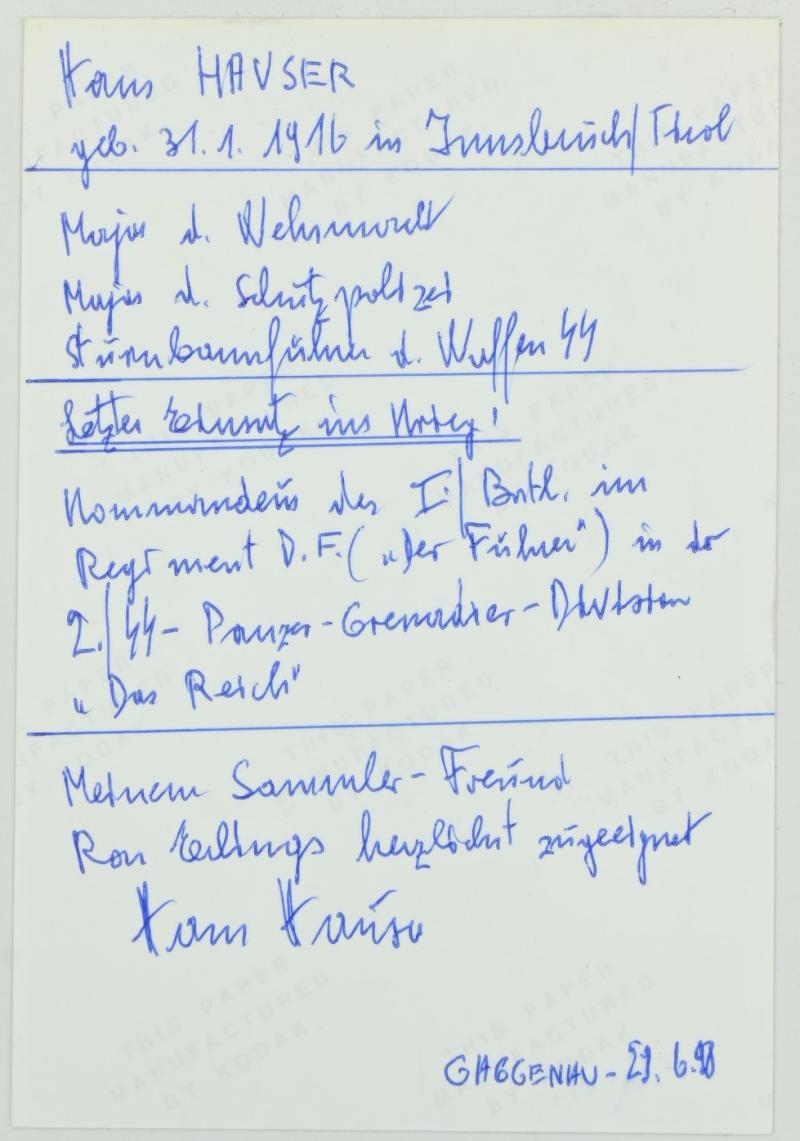 Hans HAUSER
geb. 31. 1. 1916 in Innsbruck/Tirol
Major d. Wehrmacht
Major d. Schutzpolizei
Sturmbannführer d. Waffen SS
Letzter Einsatz im Krieg!
Kommandeur des I./Batl. im
Regiment D. F. („Der Führer") in der
2./SS-Panzer-Grenadier-Division
„Das Reich"
Meinem Sammler-Freund
Ron Erlings herzlichst zugeeignet
Hans Hauser
GAGGENAU - 29. 6. 98
THIS PAPER
MANUFACTURED
BY KODAK